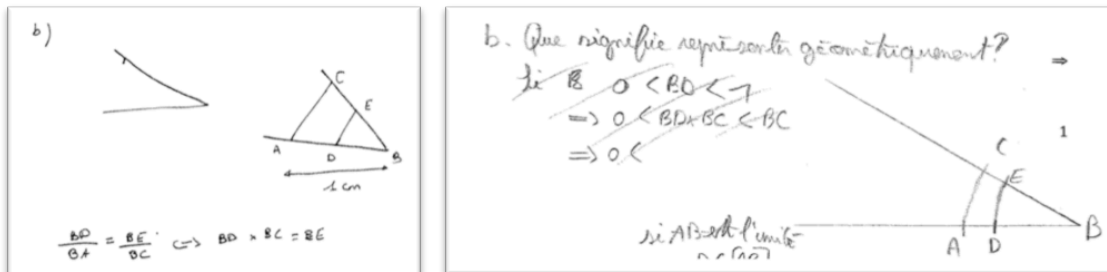 b)
C
E
A
D
B
1 cm
BD/BA = BE/BC <=> BD × BC = BE
b. Que signifie représenter géométriquement?
Si 0 < BD < 1
=> 0 < BD × BC < BC
=> 0 <
⇒
1
C
E
B
A
D
si AB est l'unité